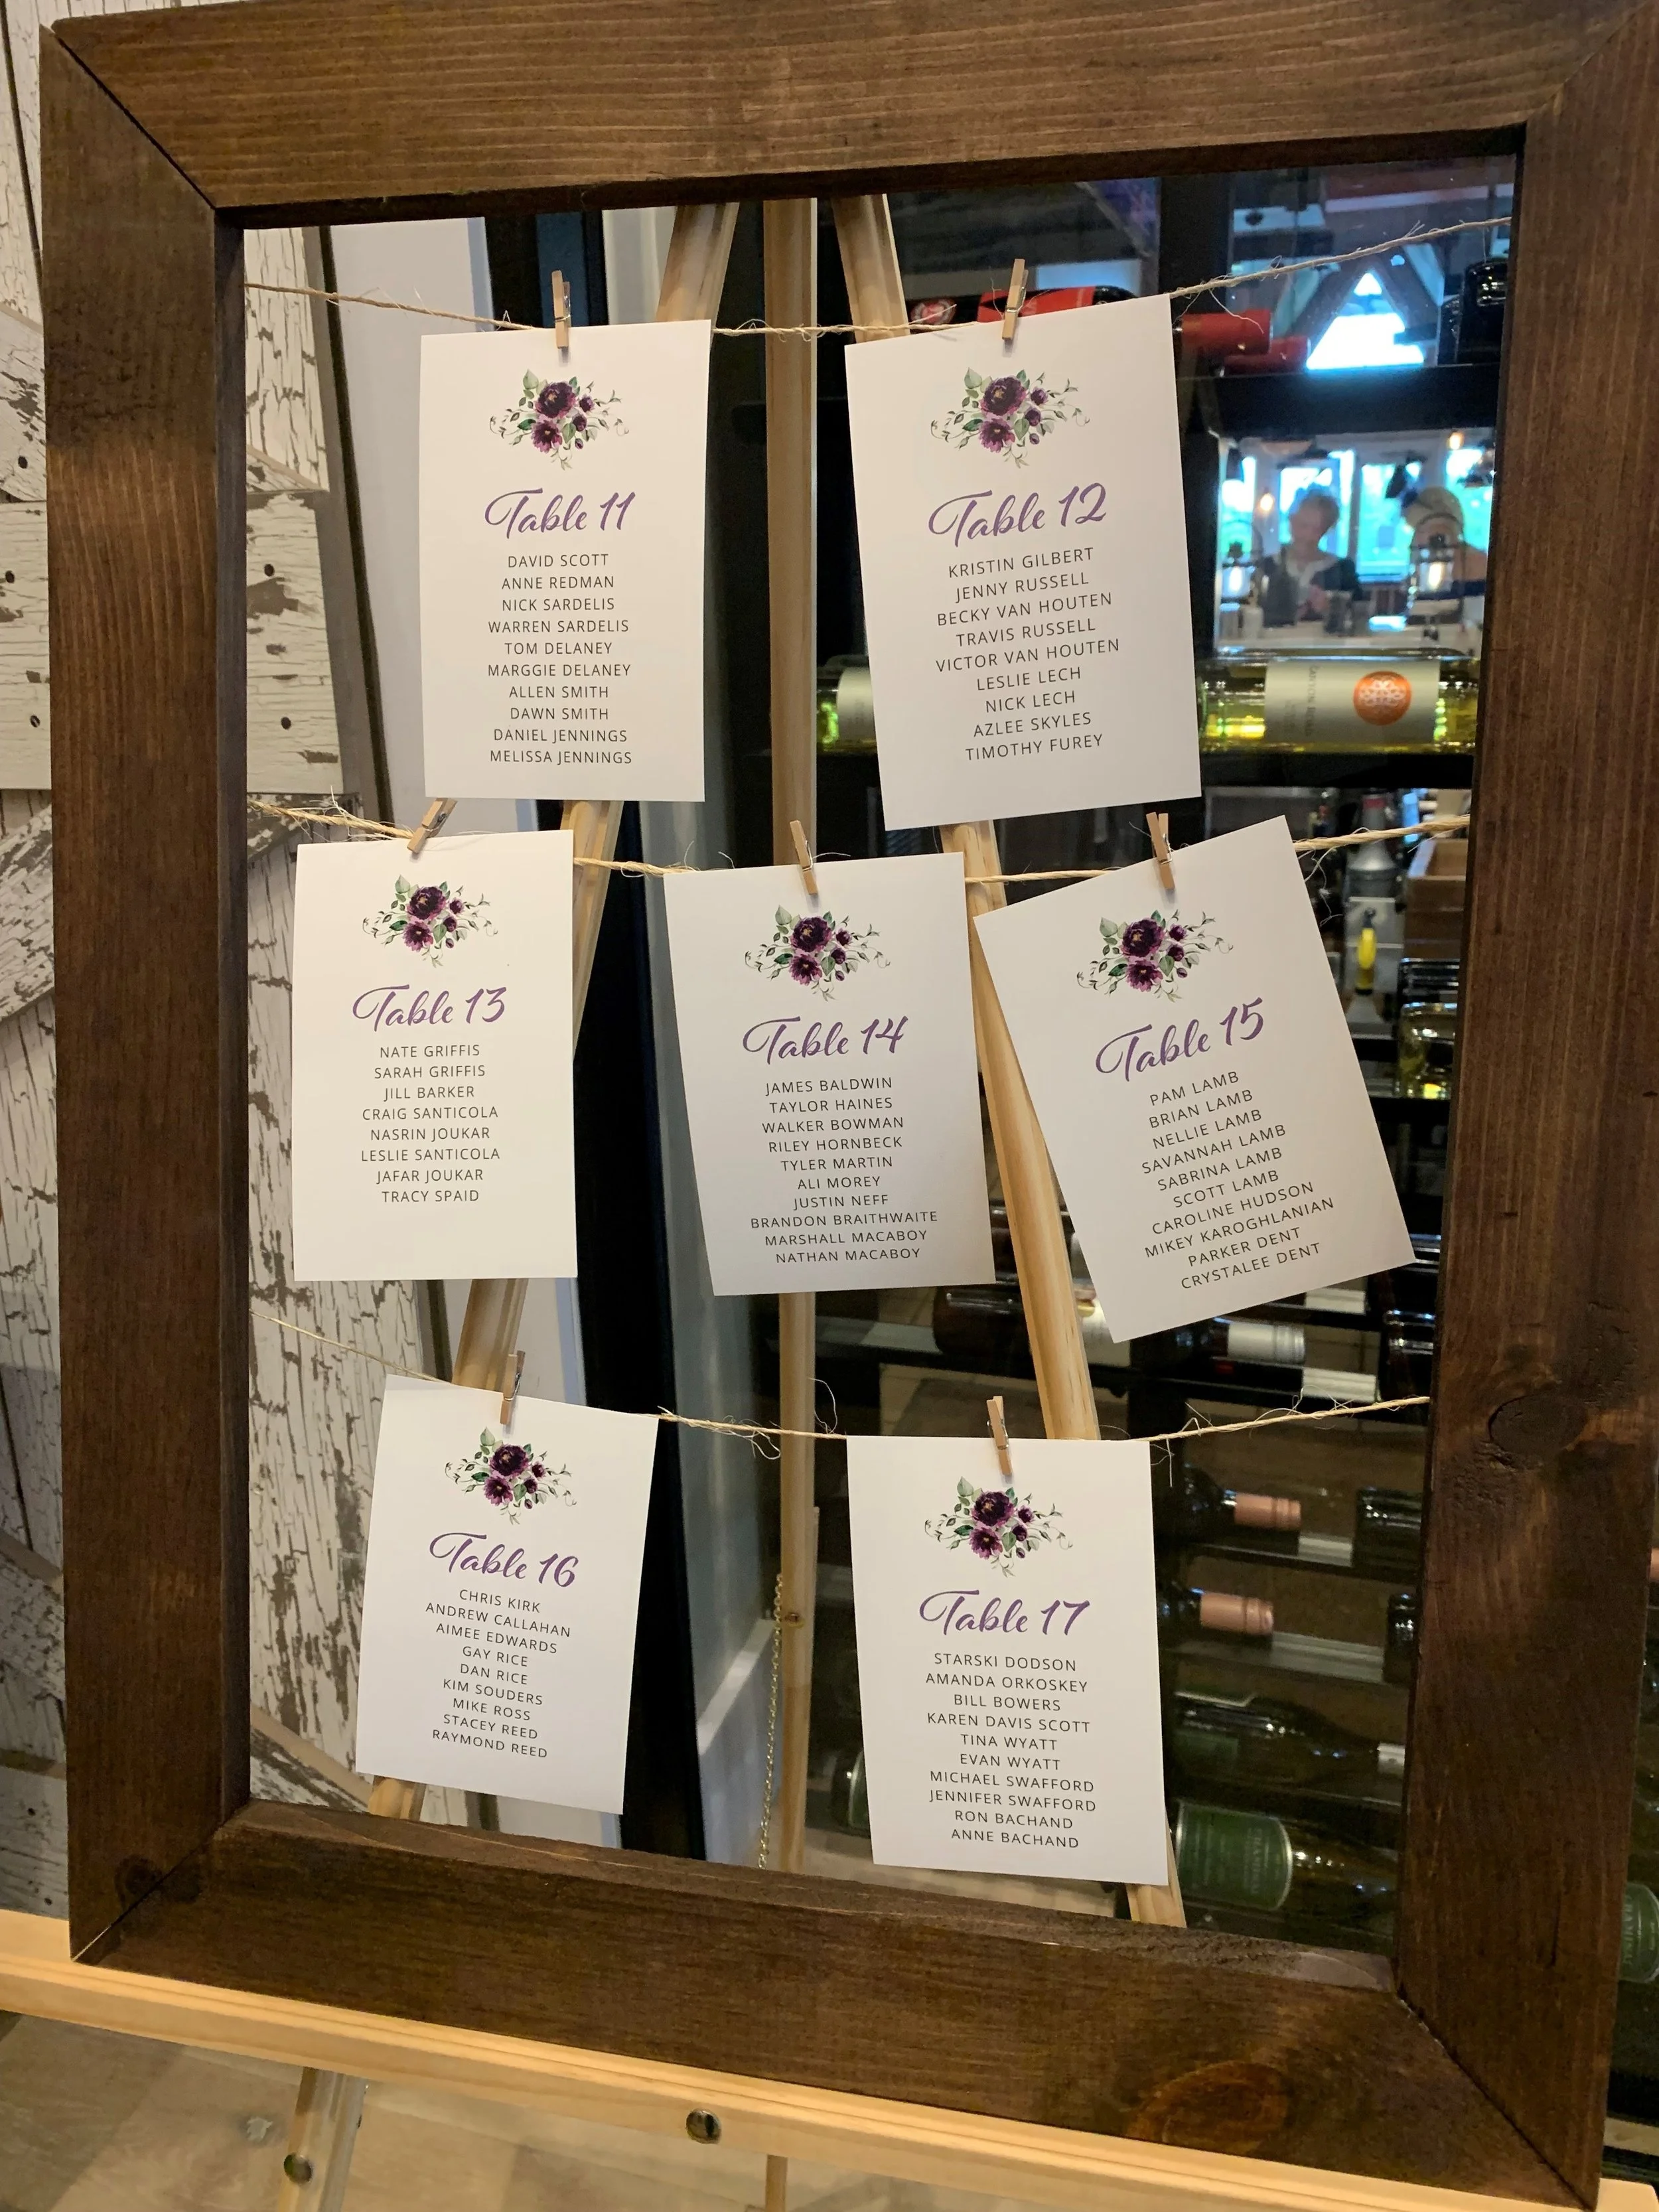 Table 11
DAVID SCOTT
ANNE REDMAN
NICK SARDELIS
WARREN SARDELIS
TOM DELANEY
MARGGIE DELANEY
ALLEN SMITH
DAWN SMITH
DANIEL JENNINGS
MELISSA JENNINGS
Table 12
KRISTIN GILBERT
JENNY RUSSELL
BECKY VAN HOUTEN
TRAVIS RUSSELL
VICTOR VAN HOUTEN
LESLIE LECH
NICK LECH
AZLEE SKYLES
TIMOTHY FUREY
Table 13
NATE GRIFFIS
SARAH GRIFFIS
JILL BARKER
CRAIG SANTICOLA
NASRIN JOUKAR
LESLIE SANTICOLA
JAFAR JOUKAR
TRACY SPAID
Table 14
JAMES BALDWIN
TAYLOR HAINES
WALKER BOWMAN
RILEY HORNBECK
TYLER MARTIN
ALI MOREY
JUSTIN NEFF
BRANDON BRAITHWAITE
MARSHALL MACABOY
NATHAN MACABOY
Table 15
PAM LAMB
BRIAN LAMB
NELLIE LAMB
SAVANNAH LAMB
SABRINA LAMB
SCOTT LAMB
CAROLINE HUDSON
MIKEY KAROGHLANIAN
PARKER DENT
CRYSTALEE DENT
Table 16
CHRIS KIRK
ANDREW CALLAHAN
AIMEE EDWARDS
GAY RICE
DAN RICE
KIM SOUDERS
MIKE ROSS
STACEY REED
RAYMOND REED
Table 17
STARSKI DODSON
AMANDA ORKOSKEY
BILL BOWERS
KAREN DAVIS SCOTT
TINA WYATT
EVAN WYATT
MICHAEL SWAFFORD
JENNIFER SWAFFORD
RON BACHAND
ANNE BACHAND